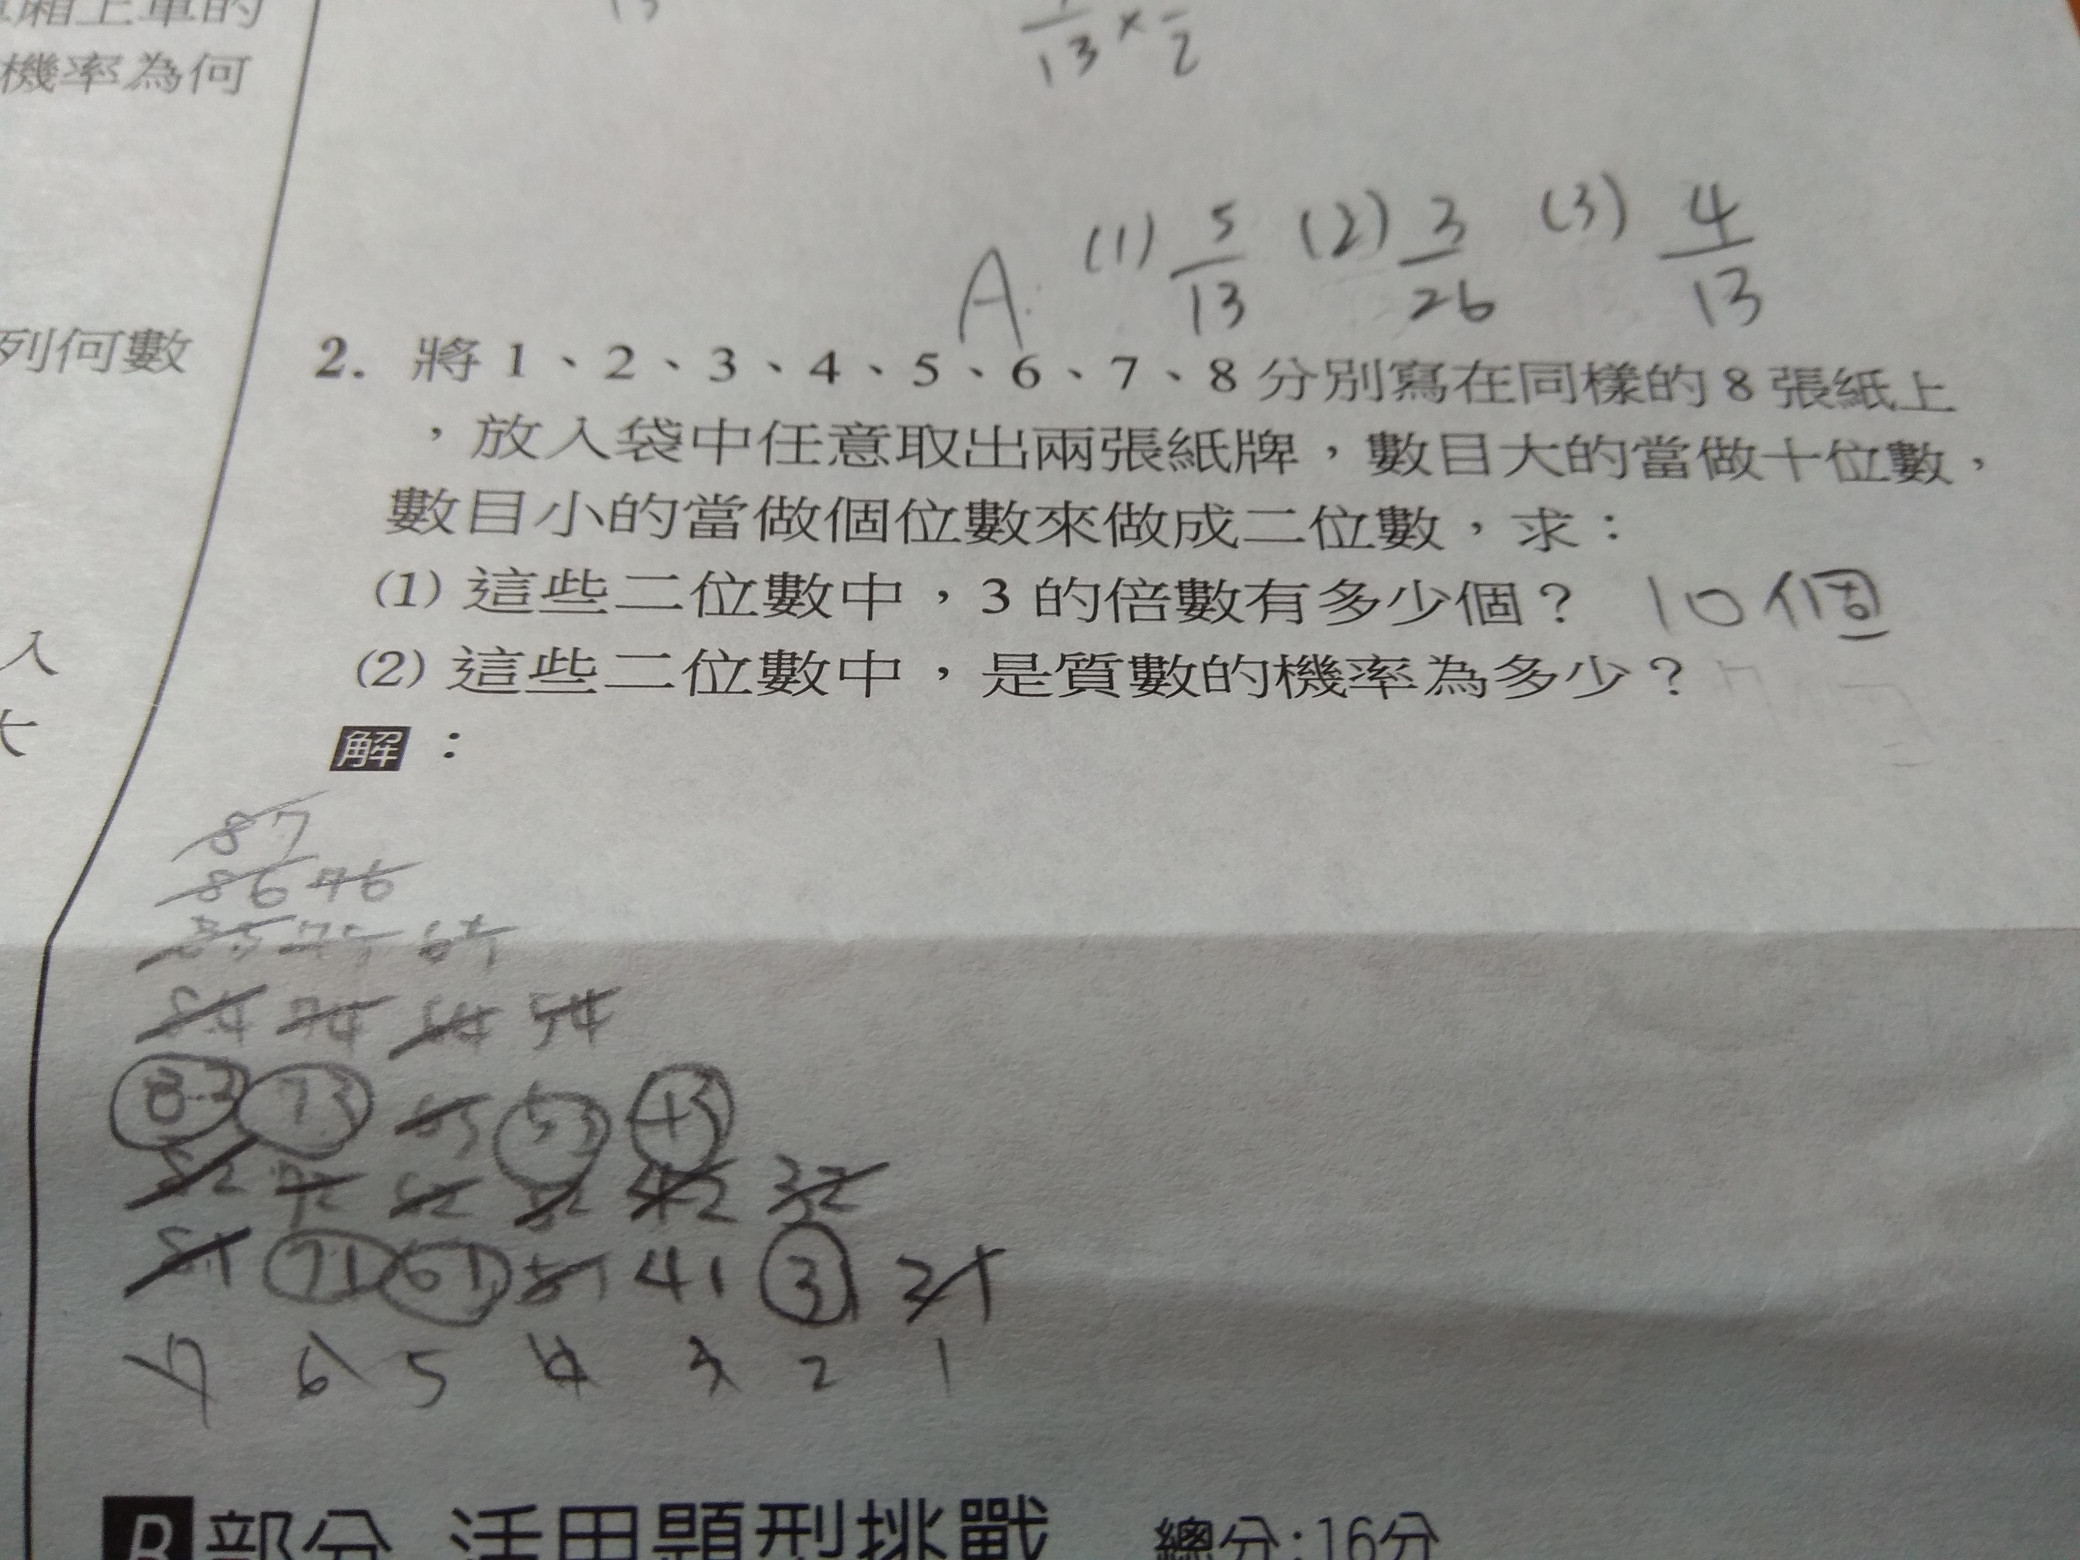 機率為何
13 × 2
A. (1) 5/13 (2) 3/26 (3) 4/13
列何數
2. 將 1、2、3、4、5、6、7、8 分別寫在同樣的 8 張紙上
，放入袋中任意取出兩張紙牌，數目大的當做十位數，
數目小的當做個位數來做成二位數，求：
(1) 這些二位數中，3 的倍數有多少個？ 10個
入
(2) 這些二位數中，是質數的機率為多少？
解：
87
86 76
85 75 65
84 74 64 54
83 73 63 53 43
82 72 62 52 42 32
81 71 61 51 41 31 21
7 6 5 4 3 2 1
B 部分 活用題型挑戰 總分:16分